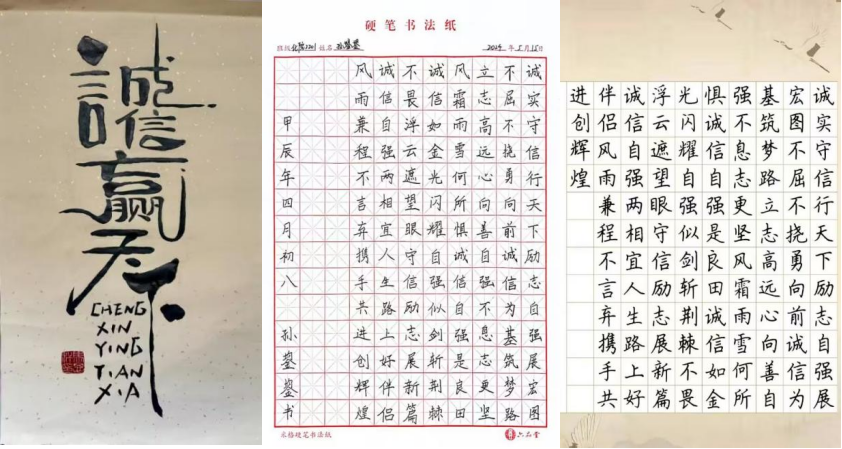 誠信赢天下
CHENG
XIN
YING
TIAN
XIA
硬笔书法纸
班级 姓名 2024年5月15日
诚实守信行天下励志自强展宏图
不屈不挠勇向前诚信为基筑梦路
立志高远心向善自强不息志更坚
风霜雨雪何所惧诚信自强是良田
诚信如金光闪耀自强似剑斩荆棘
不畏浮云遮望眼守信励志展新篇
诚信自强两相宜人生路上好伴侣
风雨兼程不言弃携手共进创辉煌
甲辰年四月初八 孙鋆鋆书
米格硬笔书法纸
六品堂
诚实守信行天下励志自强展
宏图不屈不挠勇向前诚信为
基筑梦路立志高远心向善自
强不息志更坚风霜雨雪何所
惧诚信自强是良田诚信如金
光闪耀自强似剑斩荆棘不畏
浮云遮望眼守信励志展新篇
诚信自强两相宜人生路上好
伴侣风雨兼程不言弃携手共
进创辉煌